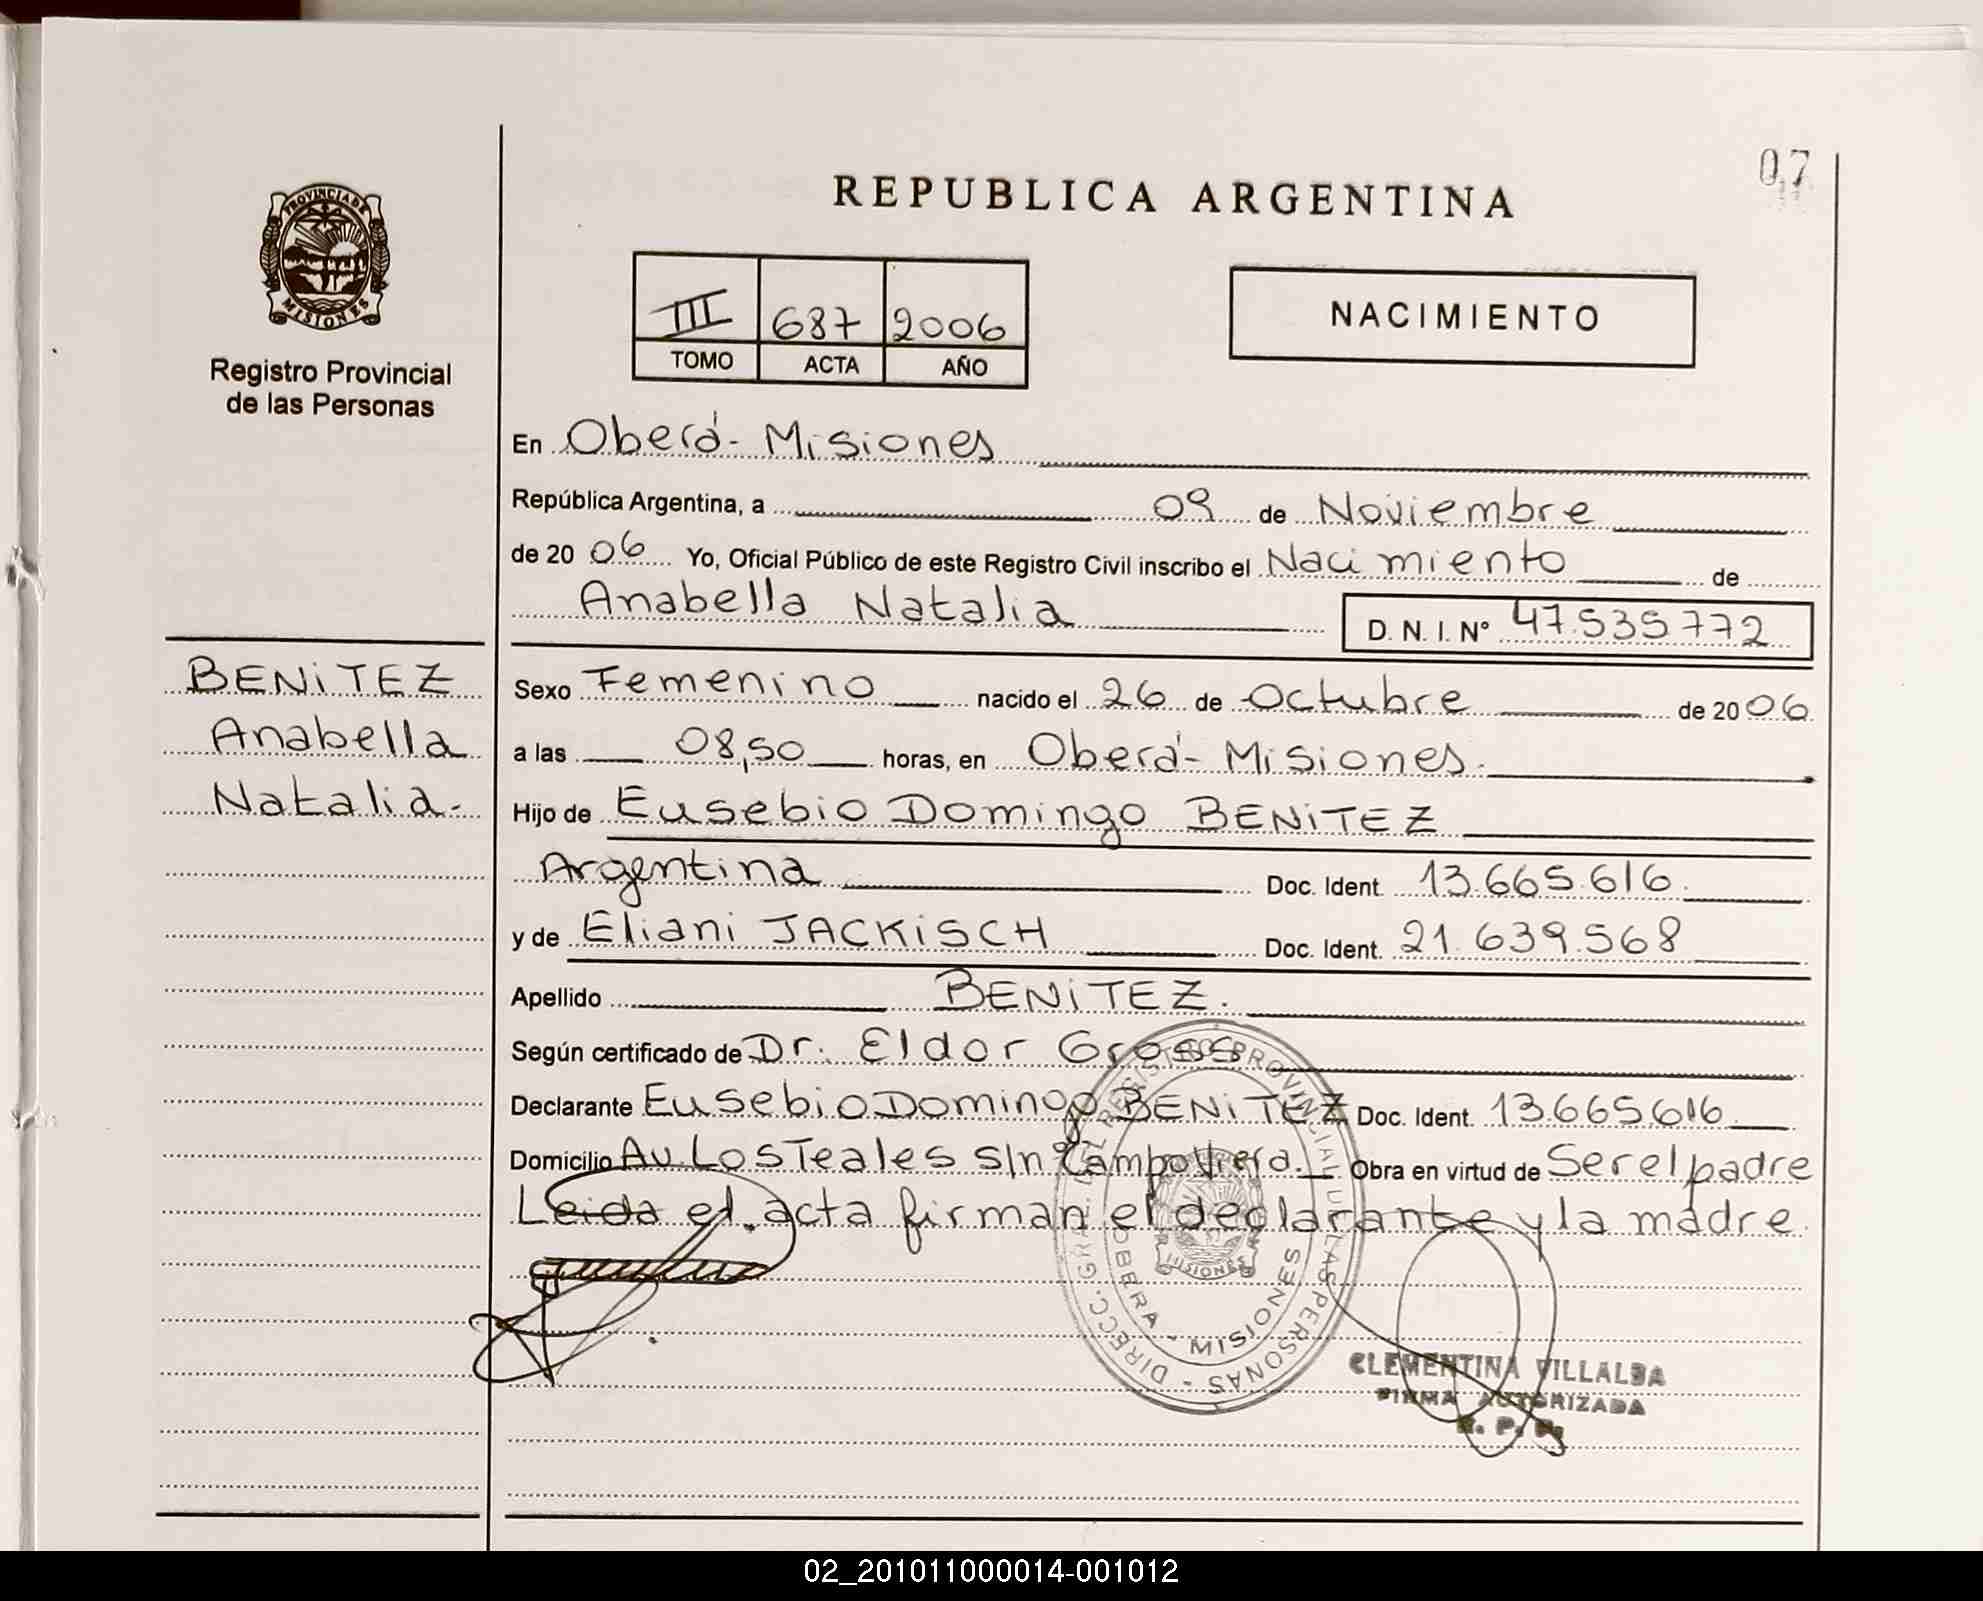 07
REPUBLICA ARGENTINA
PROVINCIA DE
MISIONES
Registro Provincial
de las Personas
III 687 2006
TOMO ACTA AÑO
NACIMIENTO
En Oberá - Misiones
República Argentina, a 09 de Noviembre
de 20 06 Yo, Oficial Público de este Registro Civil inscribo el Nacimiento de
Anabella Natalia D. N. I. N° 47.535.772
BENiTEZ
Anabella
Natalia.-
Sexo Femenino nacido el 26 de Octubre de 20 06
a las 08,50 horas, en Oberá - Misiones.
Hijo de Eusebio Domingo BENiTEZ
Argentina Doc. Ident. 13.665.616.
y de Eliani JACKiSCH Doc. Ident. 21.639.568
Apellido BENiTEZ.
Según certificado de Dr. Eldor Gross
Declarante Eusebio Domingo BENiTEZ Doc. Ident. 13.665.616
Domicilio Av. Los Teales s/n° Campo Viera. Obra en virtud de Ser el padre
Leida el acta firman el declarante y la madre.
DIRECC. GRAL. DEL REGISTRO PROVINCIAL DE LAS PERSONAS -
OBERA - MISIONES
MISIONES
CLEMENTINA VILLALBA
FIRMA AUTORIZADA
R. P. P.
02_201011000014-001012